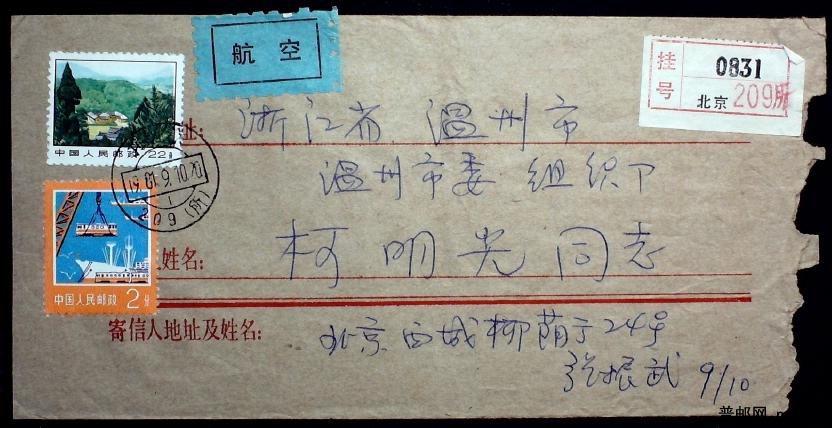 航空
挂号
0831
北京 209所
中国人民邮政 22分
址:
浙江省 温州市
温州市委 组织卩
209(所)
姓名:
柯明光同志
中国人民邮政 2分
寄信人地址及姓名:
北京西城柳荫亍24号
张振武 9/10
普邮网